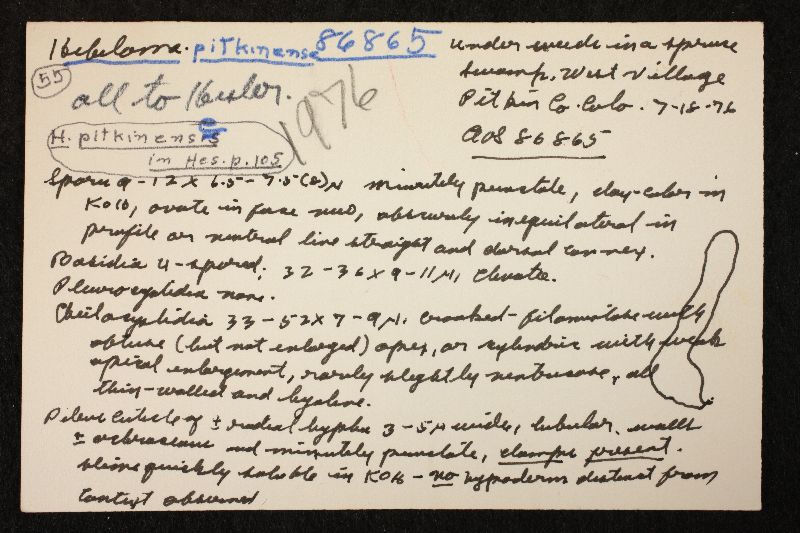 Hebeloma. pitkinense 86865
under weeds in a spruce
swamp, West Village
Pitkin Co. Colo. 7-18-76
AHS 86865
55
all to Hesler.
1976
H. pitkinensis
in Hes. p. 105
Spores 9-12 x 6.5-7.5(8)µ minutely punctate, clay-color in
KOH, ovate in face view, obscurely inequilateral in
profile or ventral line straight and dorsal convex.
Basidia 4-spored; 32-36 x 9-11 µ, clavate.
Pleurocystidia none.
Cheilocystidia 33-52 x 7-9 µ, crooked-filamentose with
obtuse (but not enlarged) apex, or cylindric with weak
apical enlargement, rarely slightly ventricose, all
thin-walled and hyaline.
Pileus cuticle of ± radial hyphae 3-5 µ wide, tubular, walls
± ochraceous and minutely punctate, clamps present.
slime quickly soluble in KOH - no hypoderm distinct from
context observed